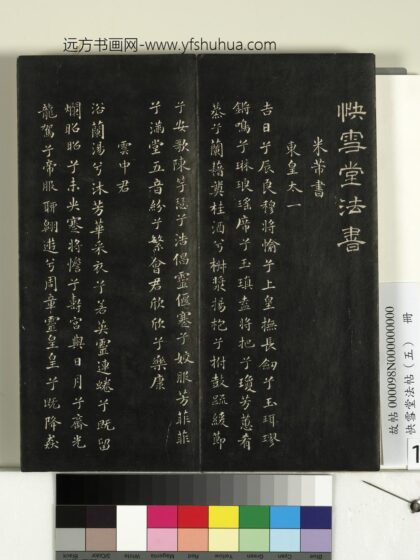 远方书画网-www.yfshuhua.com
快雪堂法書
米芾書
東皇太一
吉日兮辰良穆將愉兮上皇撫長劍兮玉珥璆
鏘鳴兮琳琅瑤席兮玉瑱盍將把兮瓊芳蕙肴
蒸兮蘭藉奠桂酒兮椒漿揚枹兮拊鼓疏緩節
兮安歌陳兮浩倡靈偃蹇兮姣服芳菲菲
兮滿堂五音紛兮繁會君欣欣兮樂康
雲中君
浴蘭湯兮沐芳華采衣兮若英靈連蜷兮既留
爛昭昭兮未央蹇將憺兮壽宮與日月兮齊光
龍駕兮帝服聊翱遊兮周章靈皇皇兮既降猋
故帖 000098N000000000 冊
快雪堂法帖（五）
1
Black
3/Color
White
Magenta
Red
Yellow
Green
Cyan
Blue